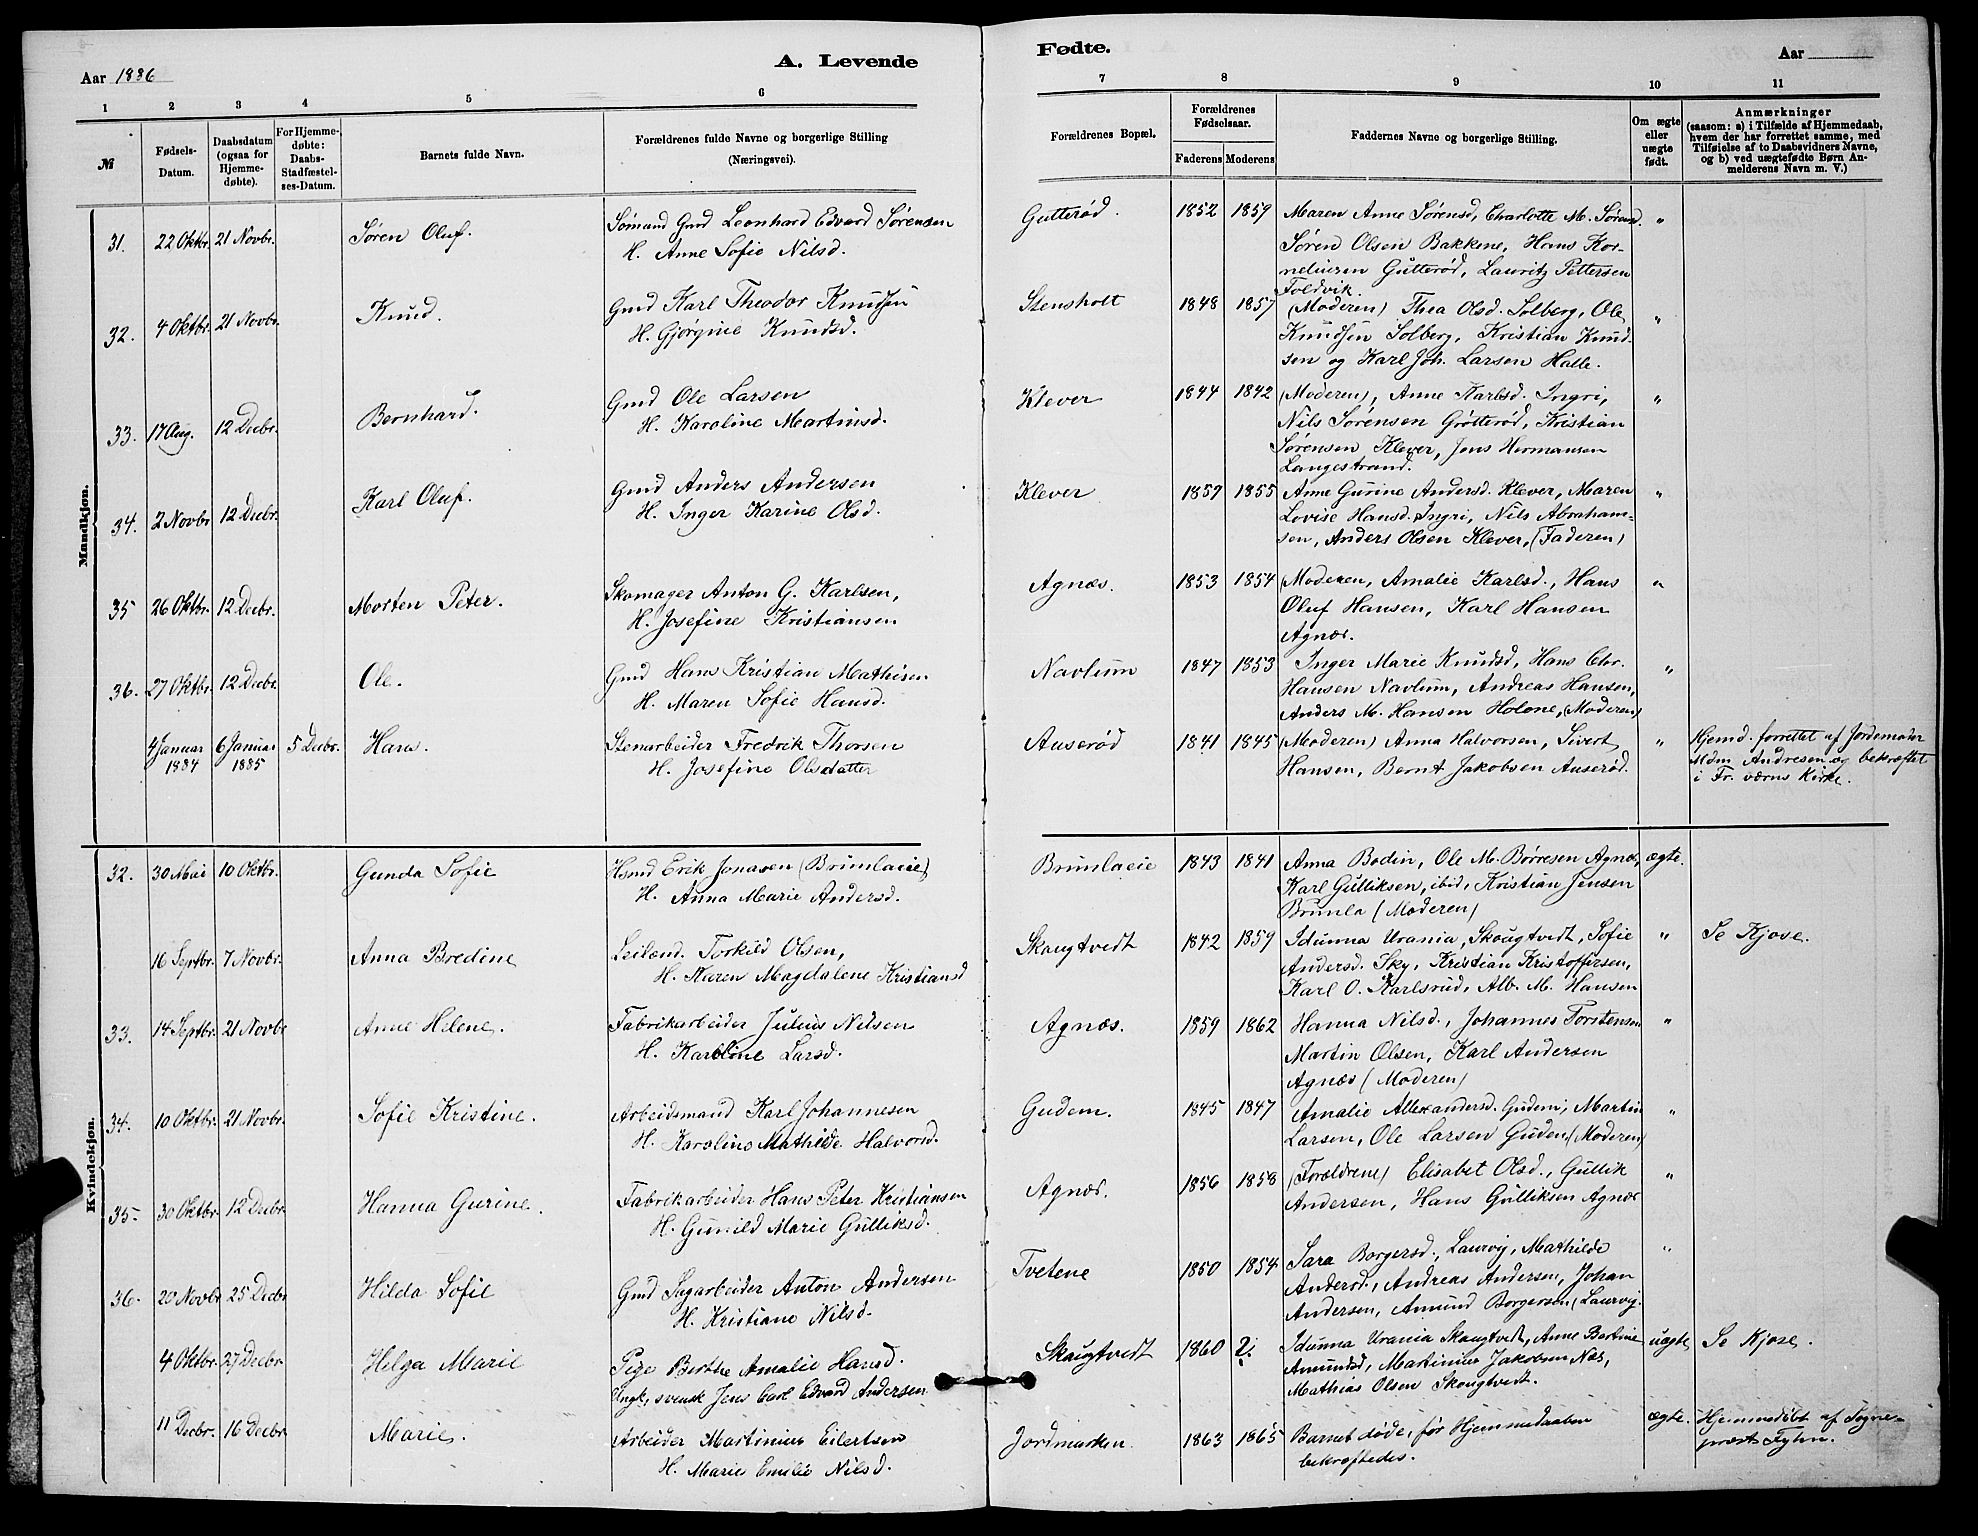 Aar 1886
A. Levende
Fødte.
Aar
1 2 3 4 5 6 7 8 9 10 11
№
Fødsels-
Datum.
Daabsdatum
(ogsaa for
Hjemme-
døbte).
For Hjemme-
døbte:
Daabs-
Stadfæstel-
ses-Datum.
Barnets fulde Navn.
Forældrenes fulde Navne og borgerlige Stilling
(Næringsvei).
Forældrenes Bopæl.
Forældrenes
Fødselsaar.
Faderens Moderens
Faddernes Navne og borgerlige Stilling.
Om ægte
eller
uægte
født.
Anmærkninger
(saasom: a) i Tilfælde af Hjemmedaab,
hvem der har forrettet samme, med
Tilføielse af to Daabsvidners Navne,
og b) ved uægtefødte Børn An-
melderens Navn m. V.)
Mandkjøn.
31. 22 Oktbr. 21 Novbr. Søren Oluf.
Sømand Gmd Leonhard Edvard Sørensen
H. Anne Sofie Nilsd.
Gutterød. 1852 1859
Maren Anne Sørensd, Charlotte M. Sørensd. "
Søren Olsen Bakkene, Hans Kor-
neliusen Gutterød, Lauritz Pettersen
Foldvik.
32. 4 Oktbr. 21 Novbr. Knud.
Gmd Karl Theodor Knudsen
H. Gjørgine Knudsd.
Stensholt 1848 1857
(Moderen) Thea Olsd. Solberg, Ole "
Knudsen Solberg, Kristian Knud-
sen og Karl Joh. Larsen Halle.
33. 17 Aug. 12 Decbr. Bernhard.
Gmd Ole Larsen
H. Karoline Martinsd.
Klever 1844 1842
(Moderen), Anne Karlsd. Ingri, "
Nils Sørensen Grøtterød, Kristian
Sørensen Klever, Jens Hermansen
Langestrand.
34. 2 Novbr 12 Decbr. Karl Oluf.
Gmd Anders Andersen
H. Inger Karine Olsd.
Klever 1859 1855
Anne Gurine Andersd. Klever, Maren "
Lovise Hansd. Ingri, Nils Abraham-
sen, Anders Olsen Klever, (Faderen)
35 26 Oktbr. 12 Decbr. Morten Peter.
Skomager Anton G. Karlsen,
H. Josefine Kristiansen
Agnæs. 1853 1854
(Moderen, Amalie Karlsd., Hans "
Oluf Hansen, Karl Hansen
Agnæs.
36. 27 Oktbr. 12 Decbr. Ole.
Gmd Hans Kristian Mathisen
H. Maren Sofie Hansd.
Navlum 1847 1853
Inger Marie Knudsd, Hans Chr. "
Hansen Navlum, Andreas Hansen,
Anders M. Hansen Holone, (Moderen)
4 Januar 6 Januar 5 Decbr. Hans.
1884 1885
Stenarbeider Fredrik Thorsen
H. Josefine Olsdatter
Auserød 1841 1845
(Moderen) Anna Halvorsen, Sivert "
Hansen, Bernt Jakobsen Auserød.
Hjemd. forrettet af Jordemoder
Mdm Andresen og bekræftet
i Fr. værns Kirke.
Kvindekjøn.
32. 30 Mai 10 Oktbr. Gunda Sofie
Hsmd Erik Jonasen (Brunlaeie)
H. Anna Marie Andersd.
Brunlaeie 1843 1841
Anna Bodin, Ole M. Børresen Agnæs, ægte.
Karl Gulliksen, ibid, Kristian Jensen
Brunla (Moderen)
16 Septbr. 7 Novbr. Anna Bredine
Leilænd. Torkild Olsen,
H. Maren Magdalene Kristiansd
Skougtvedt 1842 1859
Idunna Urania, Skougtvedt, Sofie "
Andersd. Sky, Kristian Kristoffersen,
Karl O. Karlsrud, Alb. M. Hansen
Se Kjose.
33. 14 Septbr. 21 Novbr Anne Helene.
Fabrikarbeider Julius Nilsen
H. Karoline Larsd.
Agnæs. 1859 1862
Hanna Nilsd., Johannes Torstensen "
Martin Olsen, Karl Andersen
Agnæs (Moderen)
34. 10 Oktbr. 21 Novbr. Sofie Kristine.
Arbeidsmand Karl Johannesen
H. Karoline Mathilde Halvorsd.
Gudem. 1845 1847
Amalie Allexandersd. Gudem, Martin "
Larsen, Ole Larsen Gudem (Moderen)
35. 30 Oktbr. 12 Decbr. Hanna Gurine.
Fabrikarbeider Hans Peter Kristiansen
H. Gunild Marie Gulliksd.
Agnæs. 1856 1858
(Forældrene) Elisabet Olsd., Gullik "
Andersen, Hans Gulliksen Agnæs
36. 20 Novbr 25 Decbr Hilda Sofie
Gmd Sagarbeider Anton Andersen
H. Kristiane Nilsd.
Tvetene 1850 1854
Sara Borgersd., Laurvig, Mathilde "
Andersd., Andreas Andersen, Johan
Andersen, Amund Borgersen (Laurvig.
4 Oktbr. 27 Decbr. Helga Marie
Pige Berthe Amalie Hansd.
Ungk, svensk Jens Carl Edvard Andersen
Skougtvedt 1860 ?.
Idunna Urania Skougtvedt, Anne Bertine uægte
Amundsd, Martinius Jakobsen Næs,
Mathias Olsen Skougtvedt.
Se Kjose.
11 Decbr. 16 Decbr. Marie.
Arbeider Martinius Eilertsen
H. Marie Emilie Nilsd.
Jordmarken. 1863 1865
Barnet døde, før Hjemmedaaben ægte.
bekræftedes.
Hjemmedøbt af Sogne-
præst Fyhn.